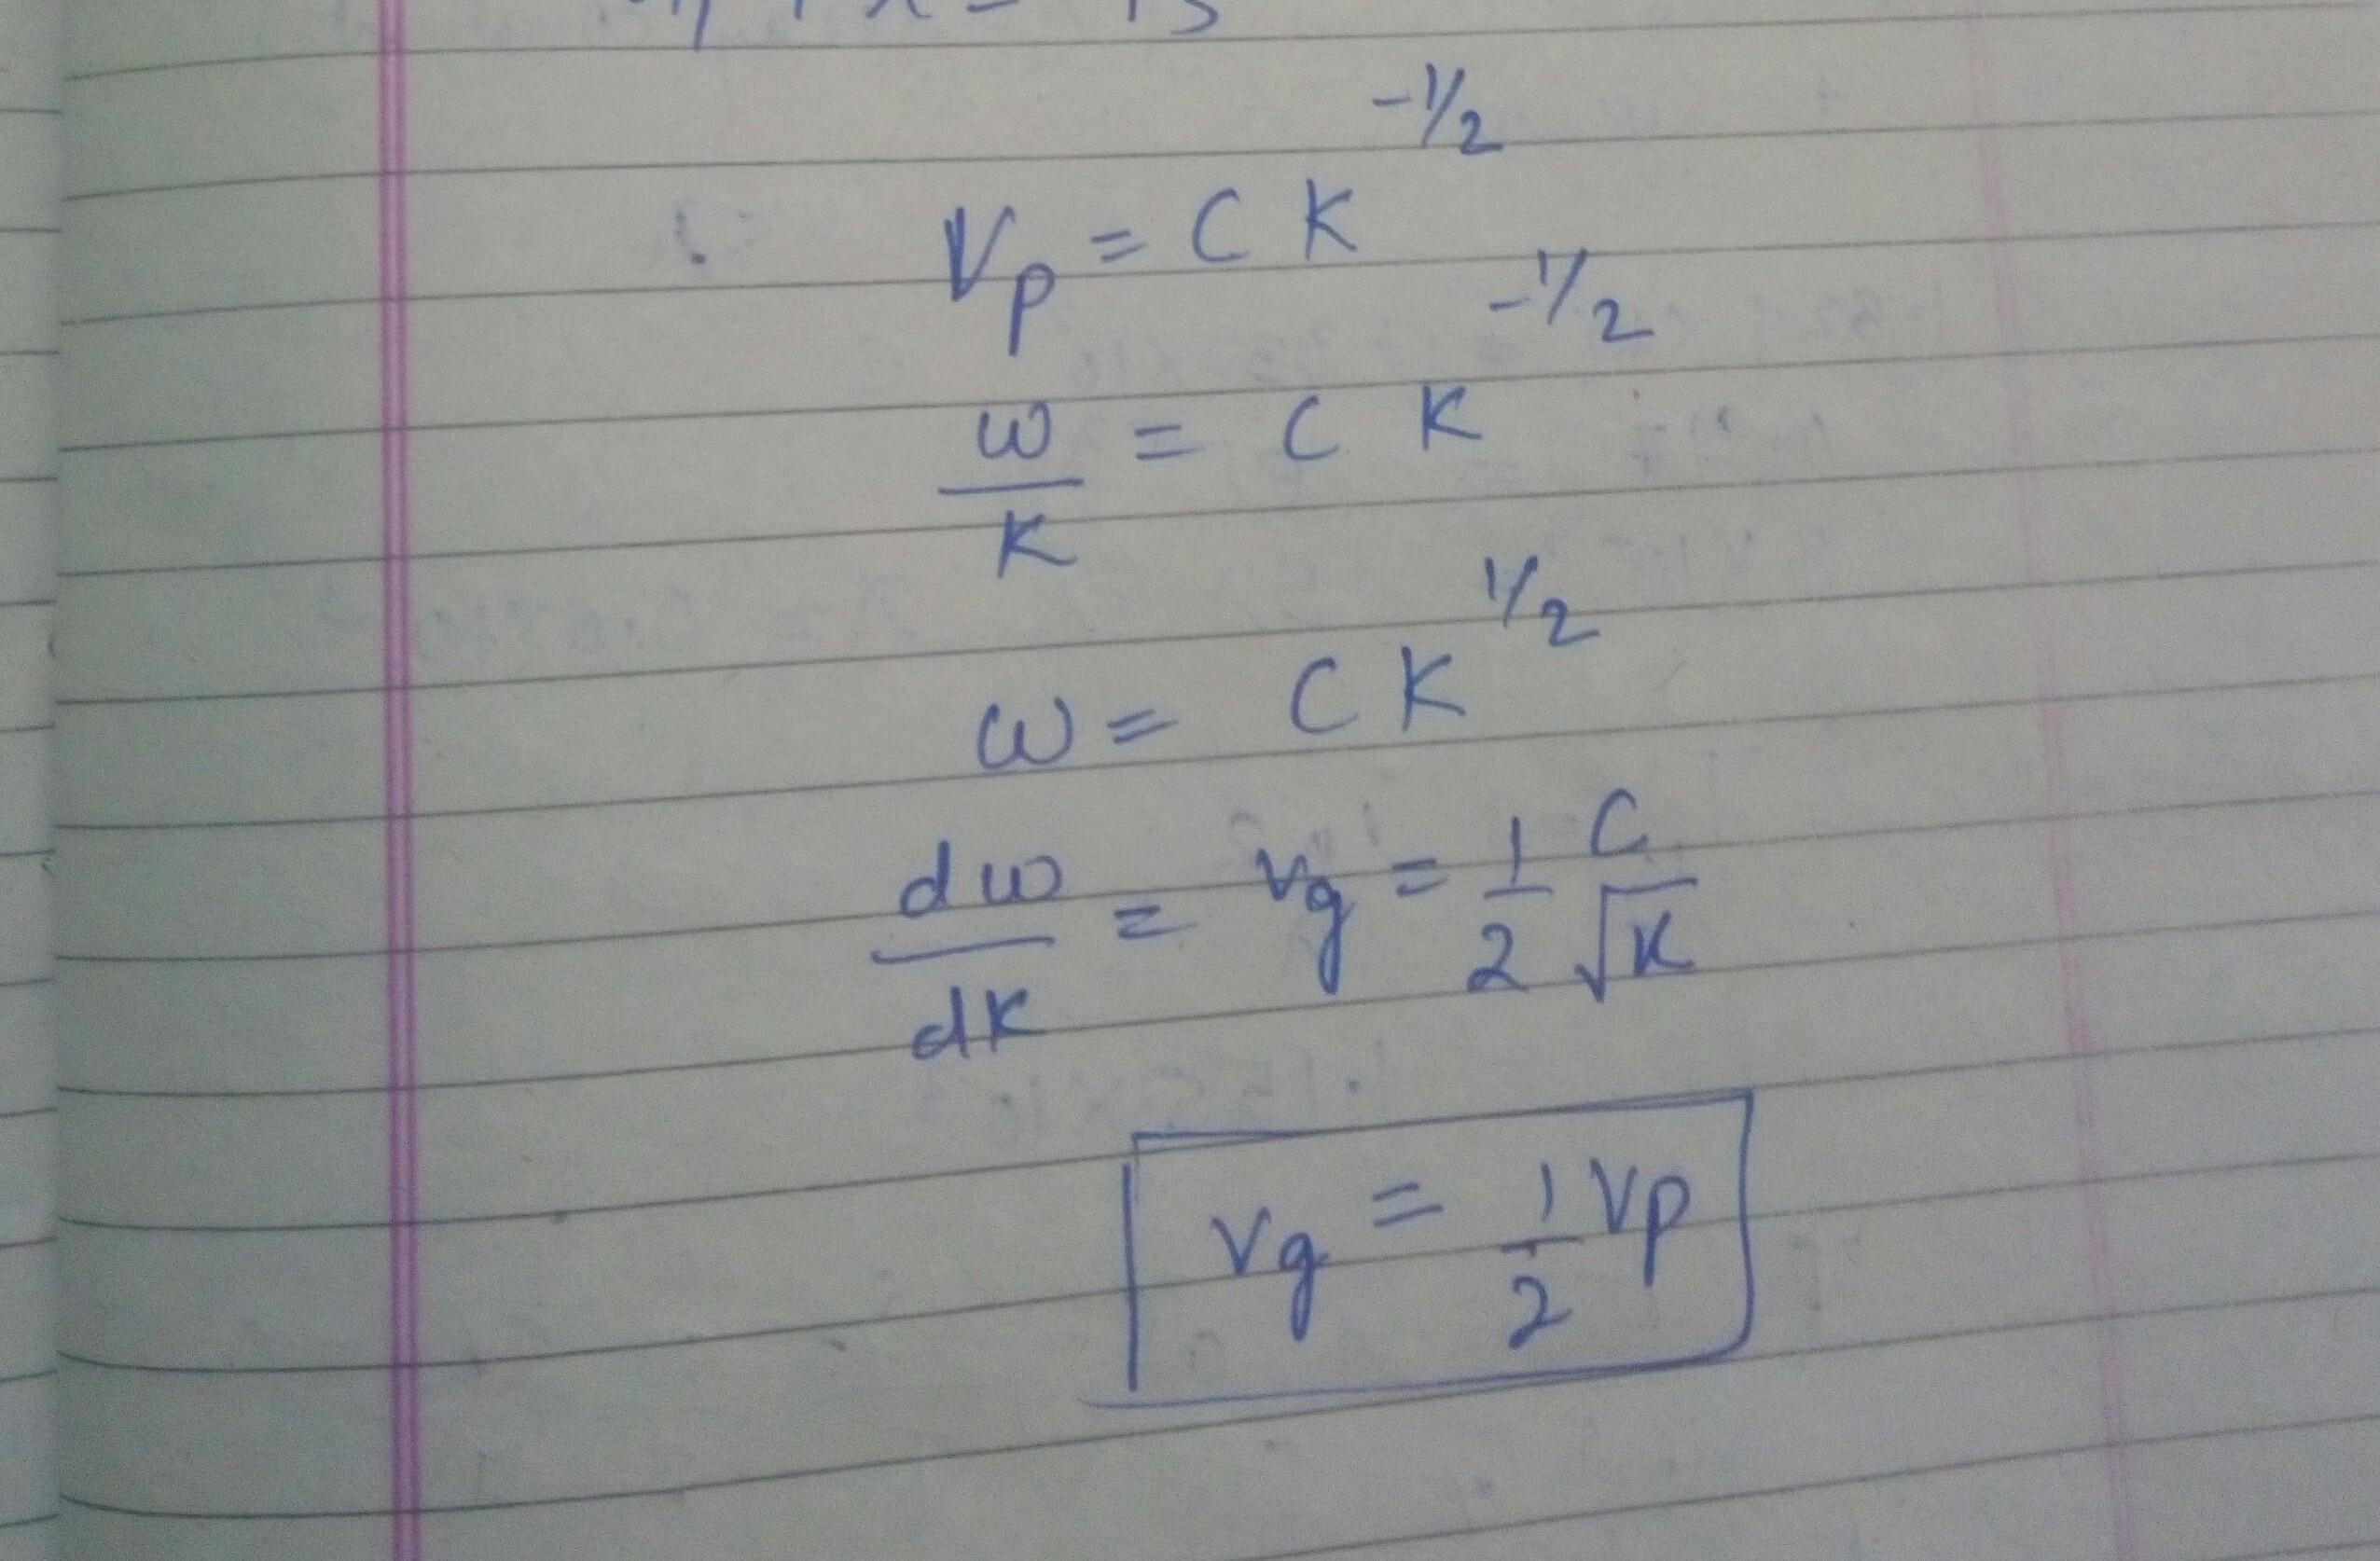 Vp = C K^-1/2
ω/K = C K^-1/2
ω = C K^1/2
dω/dK = vg = 1/2 C/√K
vg = 1/2 Vp